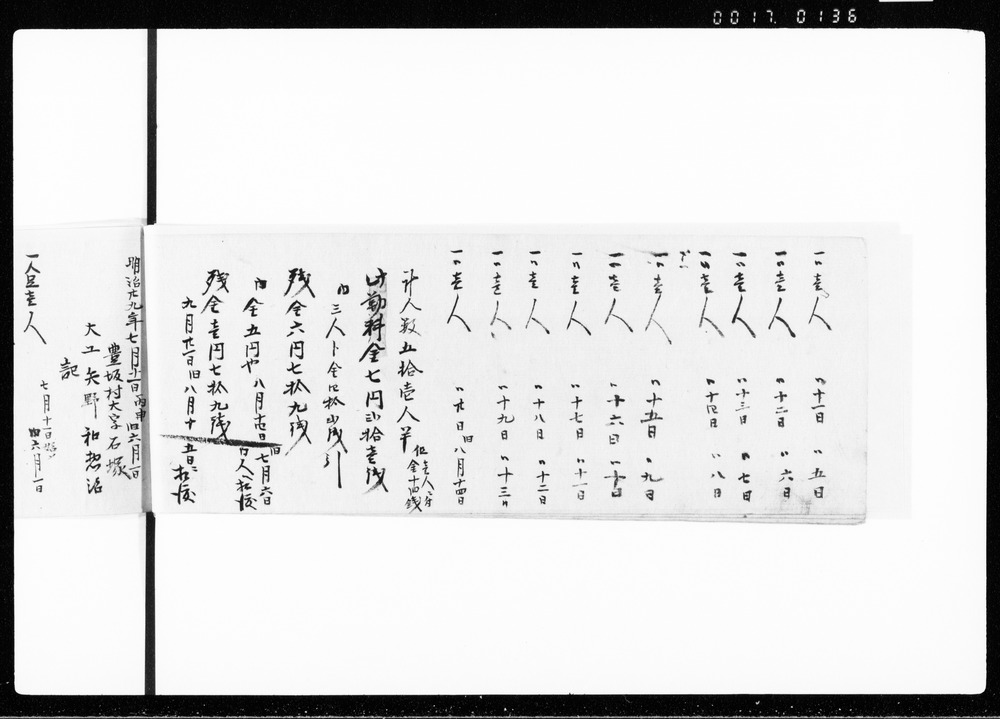 0017. 0136
一〃壱人 〃十一日 〃五日
一〃壱人 〃十二日 〃六日
一〃壱人 〃十三日 〃七日
一〃壱人 〃十四日 〃八日
一〃壱人 〃十五日 〃九日
一〃壱人 〃十六日 〃十日
一〃壱人 〃十七日 〃十一日
一〃壱人 〃十八日 〃十二日
一〃壱人 〃十九日 〃十三日
一〃壱人 〃廿日 旧八月十四日
計人数五拾壱人半 但壱人ニ分金十四銭
此勤料金七円弐拾壱銭
内三人ト金四拾弐銭引
残金六円七拾九銭
内金五円也 八月 日 旧七月六日 本人ヘ相渡
残金壱円七拾九銭
九月廿一日旧八月十五日ニ相渡
明治廿九年七月十一日丙申旧六月一日
豊坂村大字石塚
大工矢野和惣治
記
一人足壱人 七月十一日 旧六月一日